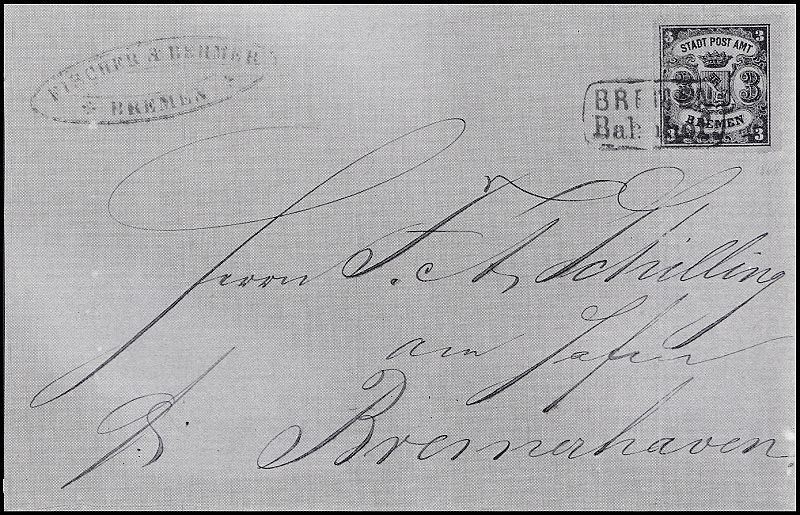 FISCHER & BERMER
* BREMEN *
3 3
STADT POST AMT
3 3
BREMEN
3 3
BREMEN
Bahnhof
Herrn F. A. Schilling
am Hafen
Bremerhaven.